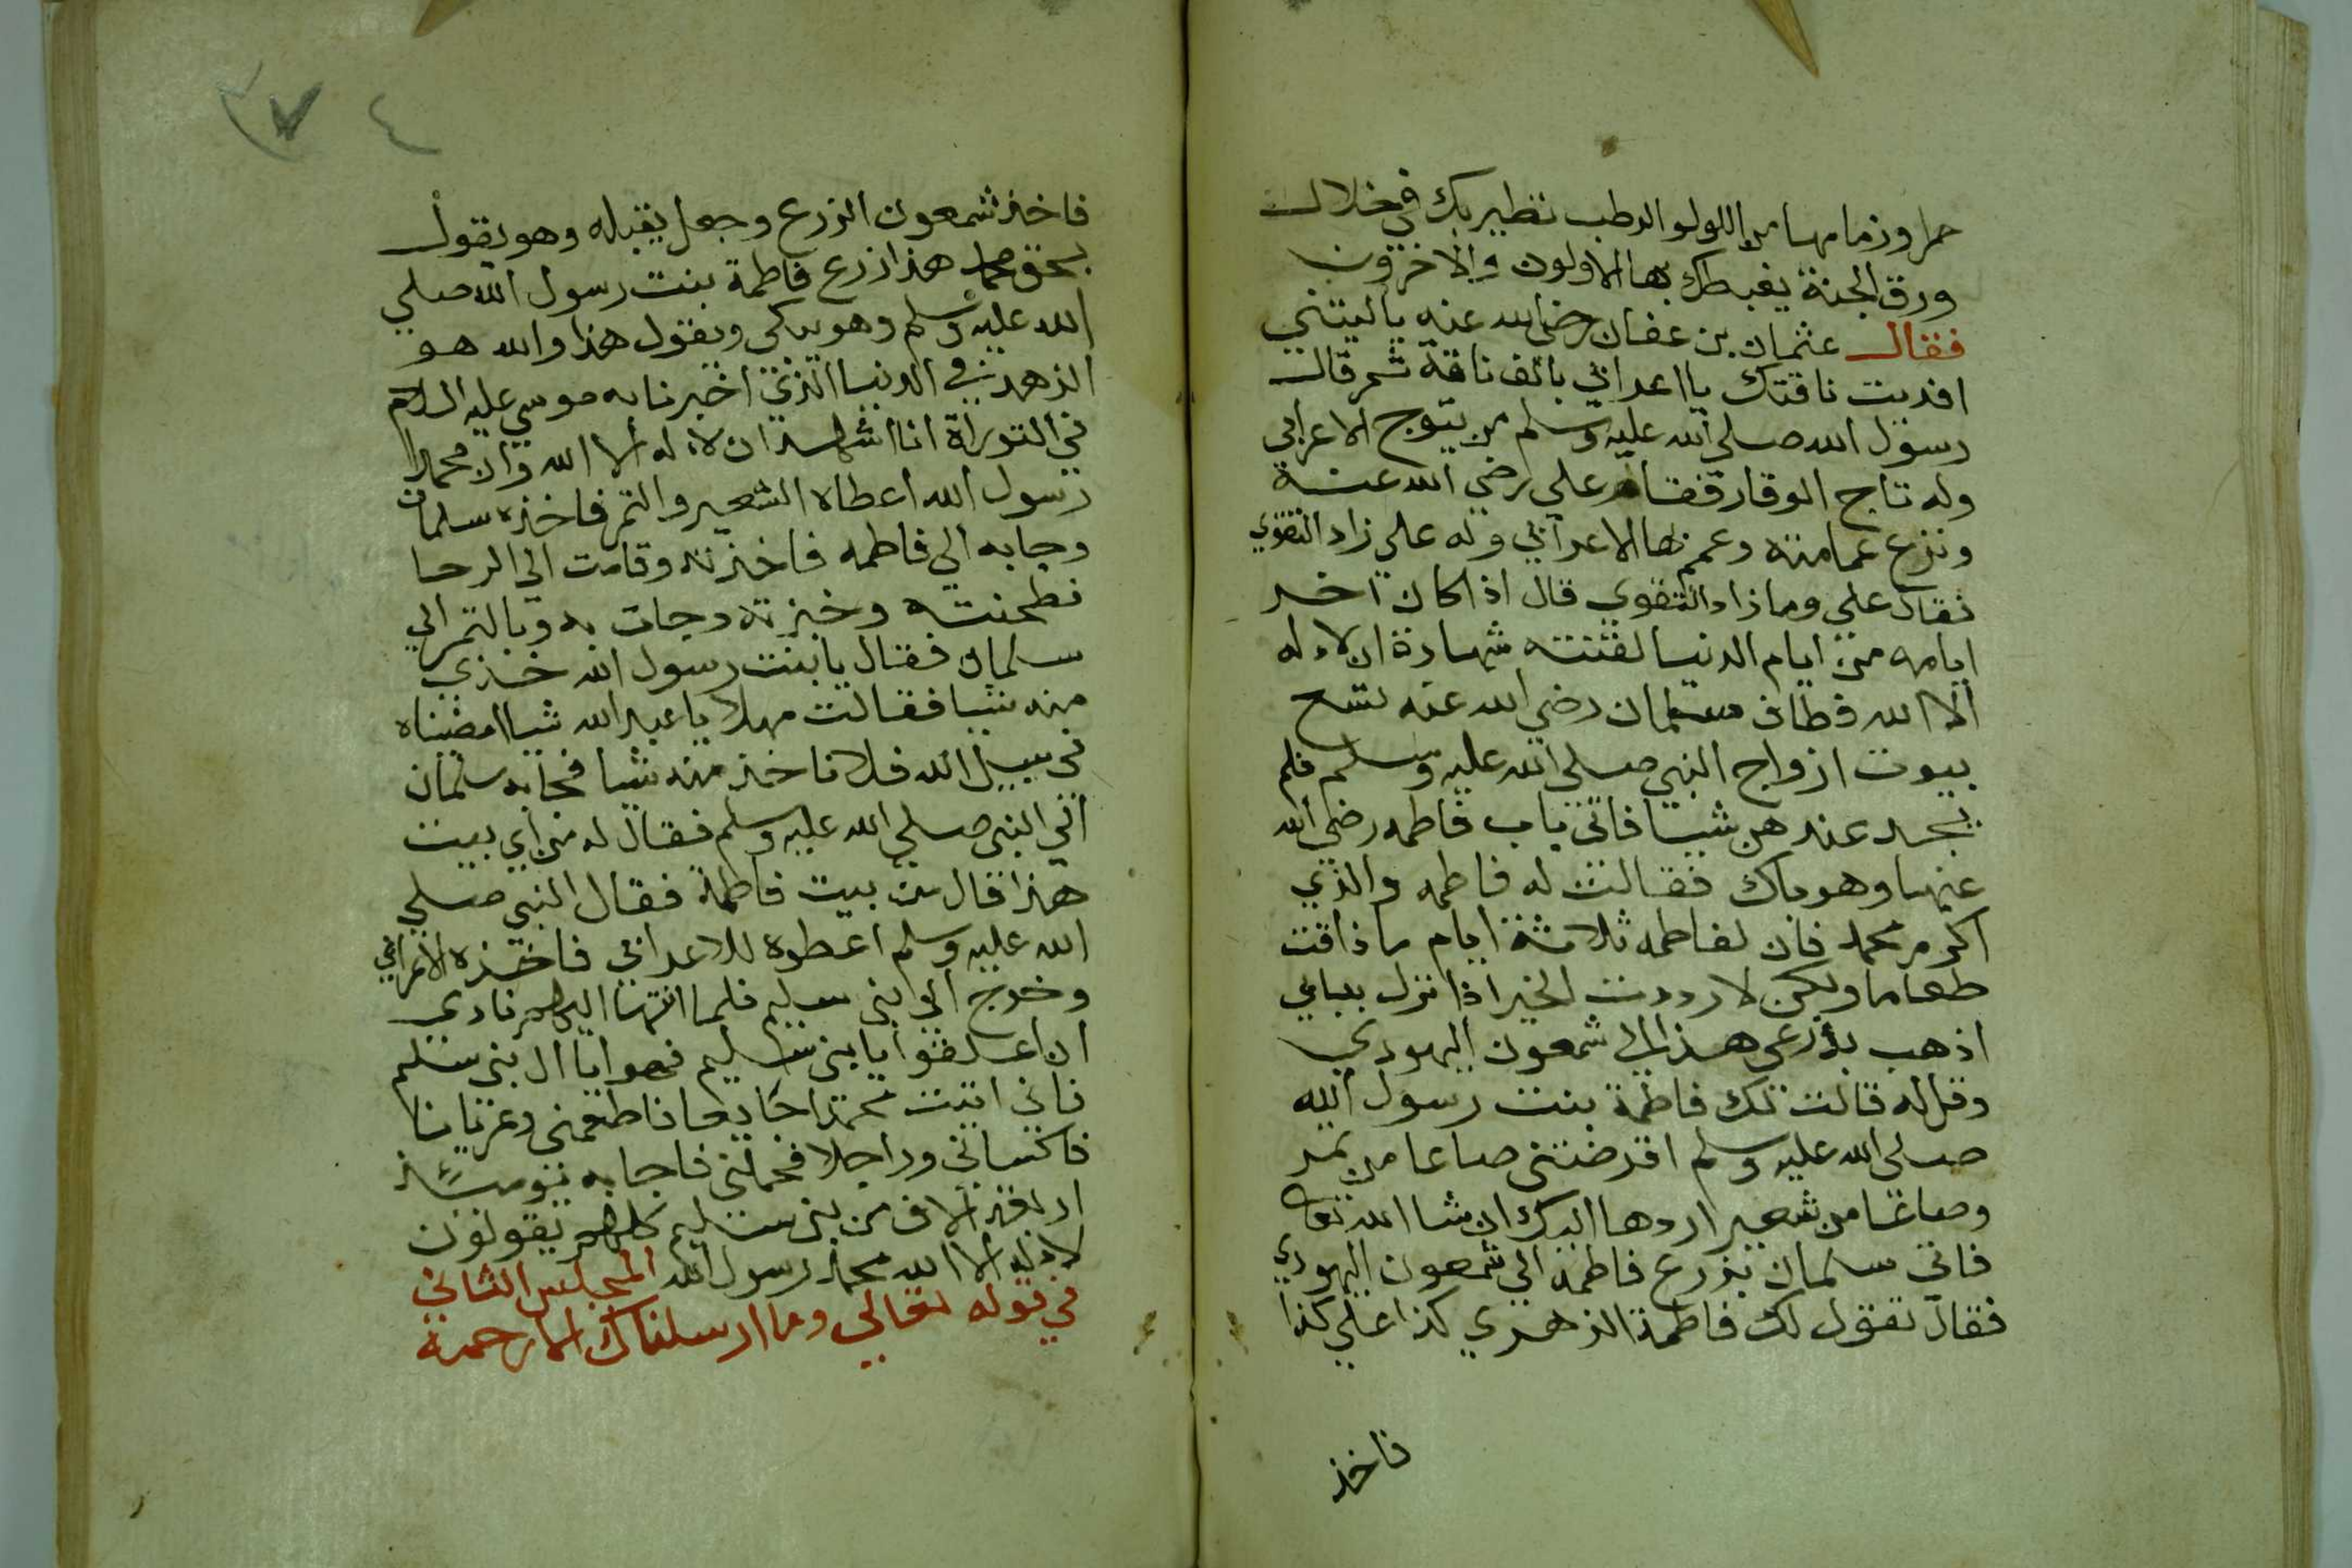 حمرا وزمامها من اللولو الرطب تطير بك في خلال
ورق الجنة يغبطك بها الاولون والاخرون
فقال عثمان بن عفان رضي الله عنه ياليتني
افديت ناقتك يا اعرابي بالف ناقة ثم قال
رسول الله صلي الله عليه وسلم من يتوج الاعرابي
وله تاج الوقار فقام علي رضي الله عنه
ونزع عمامته وعمم بها الاعرابي وله علي زاد التقوي
فقال علي وما زاد التقوي قال اذا كان اخر
ايامه من ايام الدنيا لقنته شهادة ان لا اله
الا الله فطاف سلمان رضي الله عنه تسع
بيوت ازواج النبي صلي الله عليه وسلم فلم
يجد عندهن شيا فاتي باب فاطمه رضي الله
عنها وهو باك فقالت له فاطمه والذي
اكرم محمد فان لفاطمه ثلاثة ايام ما ذاقت
طعاما ولكن لا رددت الخير اذا نزل ببابي
اذهب بدرعي هذا الي شمعون اليهودي
وقل له قالت لك فاطمة بنت رسول الله
صلي الله عليه وسلم اقرضتني صاعا من تمر
وصاعا من شعير اردها اليك ان شا الله تعا
فاتي سلمان بزرع فاطمه الي شمعون اليهودي
فقال تقول لك فاطمة الزهري كذا علي كذا
فاخذ
٣٧٤
فاخذ شمعون الزرع وجعل يقبله وهو يقول
بحق محمد هذا زرع فاطمة بنت رسول الله صلي
الله عليه وسلم وهو يبكي ويقول هذا والله هو
الزهد في الدنيا الذي اخبرنا به موسي عليه السلام
في التوراة انا اشهد ان لا اله الا الله وان محمدا
رسول الله اعطاه الشعير والتمر فاخذه سلمان
وجا به الي فاطمه فاخذته وقامت الي الرحا
فطحنته وخبزته وجات به وبالتمر الي
سلمان فقال يا بنت رسول الله خذي
منه شيا فقالت مهلا يا عبد الله شيا امضيناه
في سبيل الله فلا ناخذ منه شيا فجا به سلمان
الي النبي صلي الله عليه وسلم فقال له من اي بيت
هذا قال من بيت فاطمة فقال النبي صلي
الله عليه وسلم اعطوه للاعرابي فاخذه الاعرابي
وخرج الي بني سليم فلما انتها اليهم نادي
ان يا بني سليم يا ال بني سليم
فاني اتيت محمدا جايعا فاطعمني وعريانا
فاكساني وراجلا فحملني فاجابه يوميئذ
اربعة الاف من بني سليم كلهم يقولون
لا اله الا الله محمد رسول الله المجلس الثاني
في قوله تعالي وما ارسلناك الا رحمة